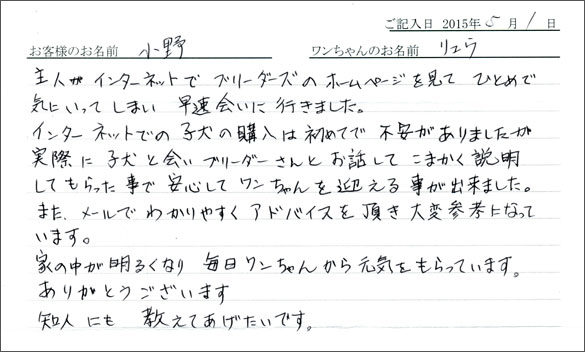 ご記入日 2015年5月1日
お客様のお名前 小野 ワンちゃんのお名前 リュウ
主人がインターネットでブリーダーズのホームページを見てひとめで
気にいってしまい 早速会いに行きました。
インターネットでの子犬の購入は初めてで不安がありましたが
実際に子犬と会いブリーダーさんとお話してこまかく説明
してもらった事で安心してワンちゃんを迎える事が出来ました。
また、メールでわかりやすくアドバイスを頂き大変参考になって
います。
家の中が明るくなり 毎日ワンちゃんから元気をもらっています。
ありがとうございます
知人にも 教えてあげたいです。